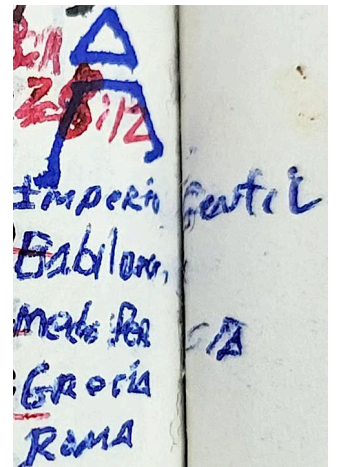 Imperio Gentil
Babilonia,
Medo PERCIA
GRecia
ROMA